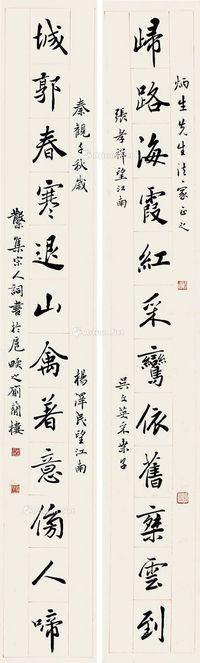 炳生先生法家正之
歸路海霞紅采鸞依舊乘雲到
張孝祥望江南
吳文英采桑子
秦觀千秋歲
楊澤民望江南
城郭春寒退山禽著意傍人啼
集宋人詞書於之樓